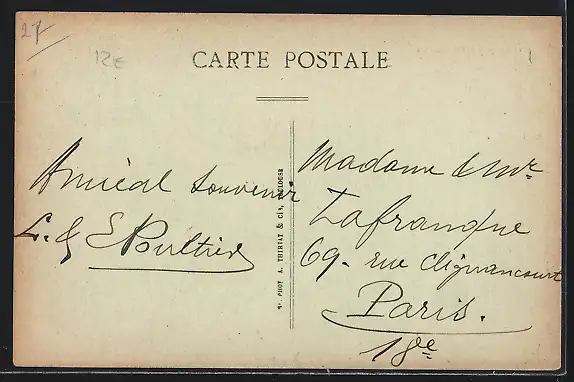 27
12E
CARTE POSTALE
Amical souvenir
L. & E Poultier
PHOT. A. THIRIAT & Cie, TOULOUSE
Madame & Mr
Lafranque
69 - rue Clignancourt
Paris.
18ee